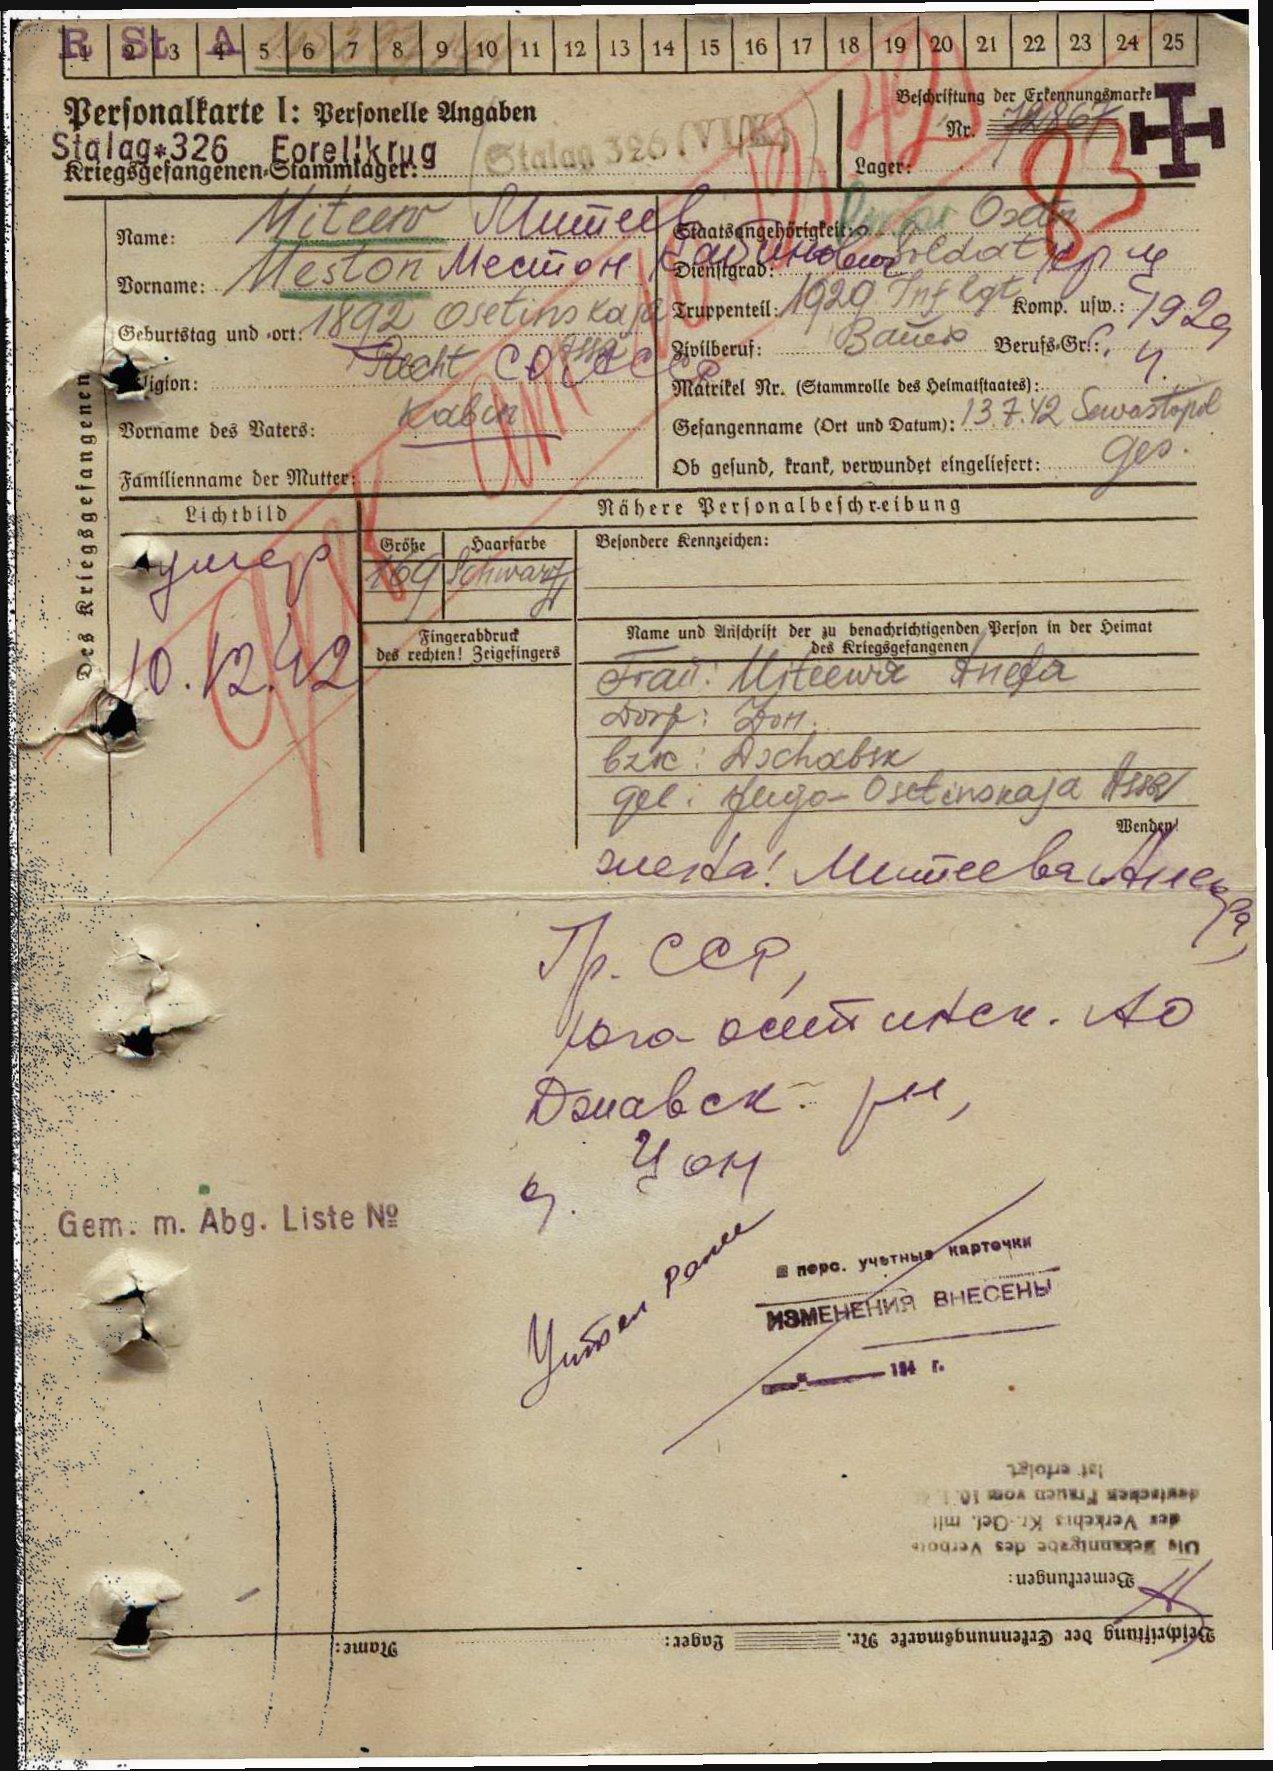 R St A
1 2 3 4 5 6 7 8 9 10 11 12 13 14 15 16 17 18 19 20 21 22 23 24 25
Personalkarte I: Personelle Angaben
Stalag 326 Forellkrug
Kriegsgefangenen-Stammlager:
Stalag 326 (VI/K)
Beschriftung der Erkennungsmarke
Nr. 72867
Lager:
83
Des Kriegsgefangenen
Name: Miteew Митеев
Vorname: Meston Местон
Geburtstag und -ort: 1892 Osetinskaja
Assa
Religion:
СО АССР
Vorname des Vaters: Kabin
Familienname der Mutter:
Staatsangehörigkeit:
Dienstgrad: Soldat
Truppenteil: 1929 Inf Rgt Komp. usw.: 1929
Zivilberuf: Bauer Berufs-Gr.:
Matrikel Nr. (Stammrolle des Heimatstaates):
Gefangenname (Ort und Datum): 13.7.42 Sewastopol
Ob gesund, krank, verwundet eingeliefert: ges.
Lichtbild
умер
10.12.42
Nähere Personalbeschreibung
Größe Haarfarbe
169 Schwarz
Besondere Kennzeichen:
Fingerabdruck
des rechten! Zeigefingers
Name und Anschrift der zu benachrichtigenden Person in der Heimat
des Kriegsgefangenen
Frau: Miteewa
Dorf: Zon.
bzk: Dschabsk
gel: Jugo-Osetinskaja Assa
Wenden!
жена! Митеева
Гр. ССР,
Юго осетинск. АО
Джавск. рн,
д. Цон
Gem. m. Abg. Liste №
Учтен ранее
в перс. учетные карточки
ИЗМЕНЕНИЯ ВНЕСЕНЫ
194 г.
Beschriftung der Erkennungsmarke Nr. Lager: Name:
Bemerkungen:
Die Bekanntgabe des Verbots
des Verkehrs Kr.-Gef. mit
deutschen Frauen vom 10.
ist erfolgt.